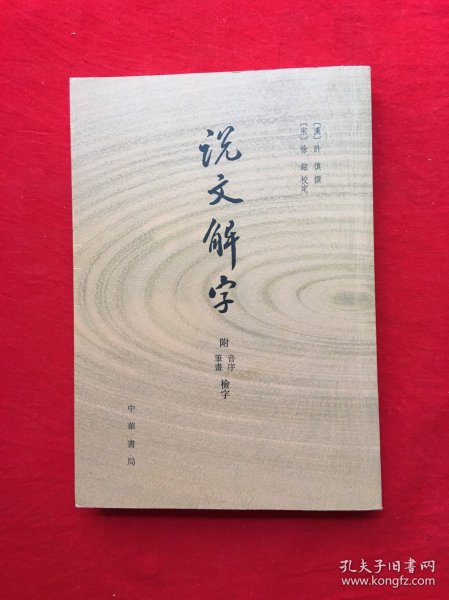 [漢] 許慎 撰
[宋] 徐鉉 校定
说文解字
附 音序 筆畫 檢字
中華書局
孔夫子旧书网
www.kongfz.com